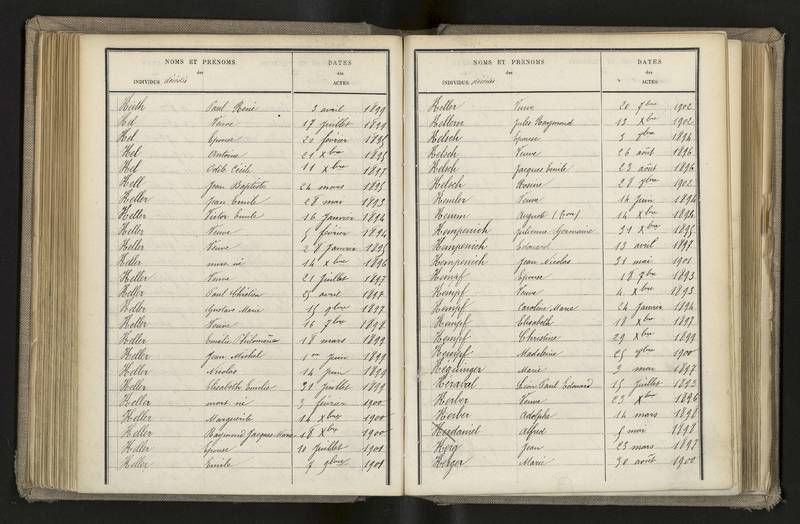 NOMS ET PRÉNOMS DATES
des des
INDIVIDUS décédés ACTES
Heith Paul René 3 avril 1899
Hel Veuve 17 juillet 1899
Hel Epouse 20 février 1895
Hel Antoine 21 Xbre 1895
Hel Odile Cécile 11 Xbre 1897
Hell Jean Baptiste 24 mars 1895
Heller Jean Emile 28 mai 1893
Heller Victor Emile 16 Janvier 1894
Heller Veuve 5 février 1894
Heller Veuve 28 Janvier 1895
Heller mort né 14 Xbre 1896
Heller Veuve 21 Juillet 1897
Heller Paul Chrétien 5 avril 1897
Heller Gustave Marie 15 9bre 1897
Heller Veuve 16 7bre 1898
Heller Emilie Philomène 18 mars 1899
Heller Jean Michel 1er Juin 1899
Heller Nicolas 14 Juin 1899
Heller Elisabeth Emilie 31 Juillet 1899
Heller mort né 3 février 1900
Heller Marguerite 14 Xbre 1900
Heller Raymond Jacques Marie 18 Xbre 1900
Heller Epouse 10 Juillet 1901
Heller Emile 7 9bre 1901
NOMS ET PRÉNOMS DATES
des des
INDIVIDUS décédés ACTES
Heller Veuve 20 7bre 1902
Hellerer Jules Raymond 13 Xbre 1902
Helsch Epouse 3 7bre 1894
Helsch Veuve 26 août 1896
Helsch Jacques Emile 23 août 1896
Helsch Rosine 28 9bre 1902
Hemler Veuve 14 Juin 1894
Hemm August 14 Xbre 1896
Hempenich Julienne Germaine 31 Xbre 1895
Hempenich Edouard 13 avril 1897
Hempenich Jean Nicolas 31 mai 1901
Hempf Epouse 18 7bre 1893
Hempf Veuve 4 Xbre 1893
Hempf Caroline Marie 24 Janvier 1894
Hempf Elisabeth 18 Xbre 1897
Hempf Christine 29 Xbre 1899
Hempf Madeleine 25 9bre 1900
Marie 3 mai 1897
Heraval Léon Paul Edouard 15 Juillet 1893
Herber Veuve 23 Xbre 1896
Herber Adolphe 14 mars 1898
Herdaniel Alfred 5 mai 1898
Herg Jean 23 mars 1897
Herger Marie 30 août 1900